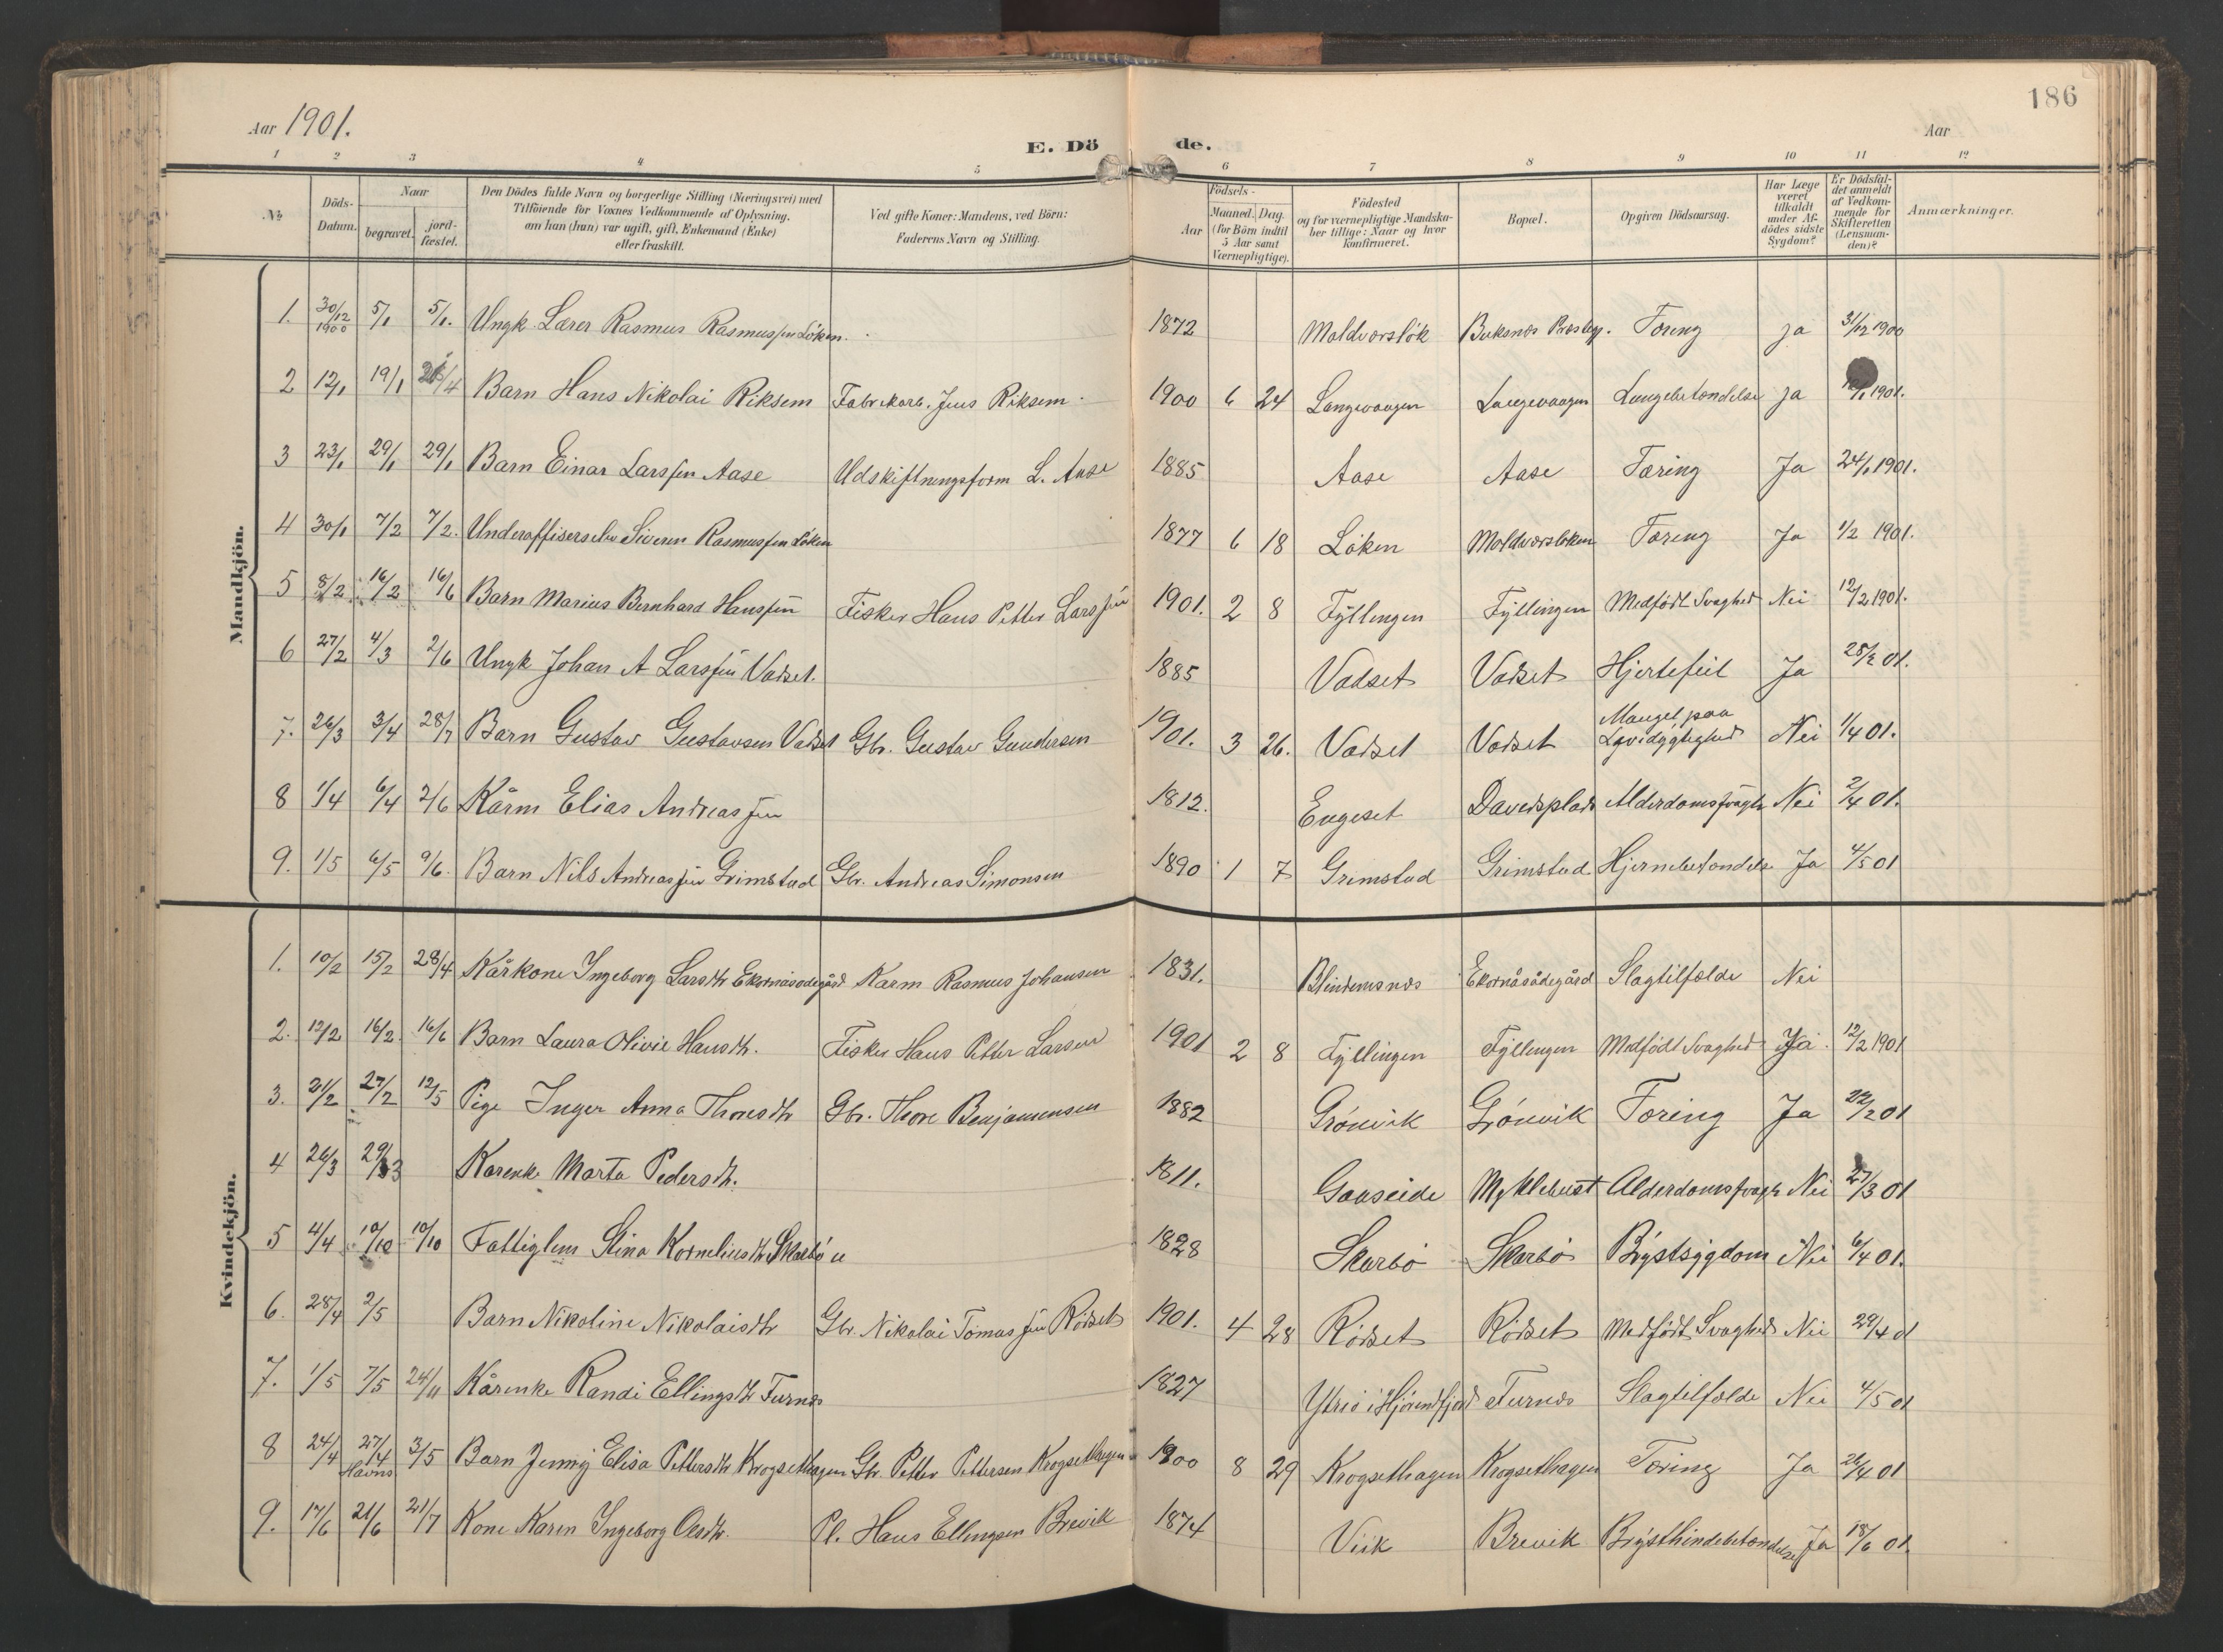 186
Aar 1901.
E. Döde.
Aar
1 2 3 4 5 6 7 8 9 10 11 12
No
Döds-Datum.
Naar
begravet.
jord-fæstet.
Den Dödes fulde Navn og borgerlige Stilling (Næringsvei) med
Tilföiende for Voxnes Vedkommende af Oplysning,
om han (hun) var ugift, gift, Enkemand (Enke)
eller fraskilt.
Ved gifte Koner: Mandens, ved Börn:
Faderens Navn og Stilling.
Födsels-
Aar
Maaned. Dag.
(for Börn indtil
5 Aar samt
Værnepligtige).
Födested
og for værnepligtige Mandska-
ber tillige: Naar og hvor
konfirmeret.
Bopæl.
Opgiven Dödsaarsag.
Har Læge
været
tilkaldt
under Af-
dödes sidste
Sygdom?
Er Dödsfal-
det anmeldt
af Vedkom-
mende for
Skifteretten
(Lensman-
den)?
Anmærkninger.
Mandkjön.
1. 30/12 1900 5/1 5/1. Ungk. Lærer Rasmus Rasmussen Löken. 1872 Moldværslök Buksnæs Præstegj. Tæring ja 31/12 1900
2 12/1 19/1 /4 Barn Hans Nikolai Riksem Fabrikarb. Jens Riksem 1900 6 24 Langevaagen Langevaagen Lungebetændelse ja /1 1901.
3 23/1 29/1 29/1 Barn Einar Larssen Aase Udskiftningsform L. Aase 1885 Aase Aase Tæring Ja 24/1 1901.
4 30/1 7/2 7/2. Underoffiserselev Siveren Rasmussen Löken 1877 6 18 Löken Moldværsløken Tæring Ja 1/2 1901.
5 8/2 16/2 16/6 Barn Marius Bernhard Hanssen Fisker Hans Petter Larssen 1901. 2 8 Fyllingen Fyllingen Medfödt Svaghed Nei 12/2 1901.
6 27/2 4/3 2/6 Ungk Johan A Larssen Vadset. 1885 Vadset Vadset Hjertefeil Ja 28/2 01.
7. 26/3 3/4 28/7 Barn Gustav Gustavsen Vadset Gbr. Gustav Gundersen 1901. 3 26. Vadset Vadset Mangel paa Levedygtighed Nei 1/4 01.
8 1/4 6/4 2/6 Kårm Elias Andreassen 1812. Engeset Davidsplads Alderdomssvagh Nei 2/4 01.
9. 1/5 6/5 9/6. Barn Nils Andreassen Grimstad Gbr. Andreas Simonsen 1890 1 7 Grimstad Grimstad Hjernebetændelse Ja 4/5 01
Kvindekjön.
1. 10/2 15/2 28/4 Kårkone Ingeborg Larsdtr Ekornäsödegård Kaarm Rasmus Johansen 1831. Blindemsnæs Ekornåsödegård Slagtilfælde Nei
2. 12/2 16/2 16/6 Barn Laura Olivie Hansdtr. Fisker Hans Petter Larsen 1901 2 8 Fyllingen Fyllingen Medfödt Svaghed Ja. 12/2 1901
3. 21/2 27/2 12/5 Pige Inger Anna Thoresdtr Gbr. Thore Benjaminsen 1882 Grönvik Grönvik Tæring Ja 22/2 01
4 26/3 29/3 Karenke Marta Pedersdtr. 1811. Gaaseide Myklebust Alderdomssvagh Nei 27/3 01
5 4/4 10/10 10/10 Fattiglem Stina Korneliusdtr Skarbö u 1828 Skarbö Skarbö Brystsygdom Nei 6/4 01.
6. 28/4 2/5 Barn Nikoline Nikolaisdtr Gbr. Nikolai Tomassen Rödset 1901. 4 28 Rödset Rödset Medfödt Svaghed Nei 29/4 01
7. 1/5 7/5 24/11 Kårenke Randi Ellingsdtr Furnæs 1827 Ytriö i Hjörundfjord Furnæs Slagtilfælde Nei 4/5 01
8 24/4 27/4 Havns 3/5 Barn Jenny Elisa Pettersdtr Krogsethagen Gbr. Petter Pettersen Krogsethagen 1900 8 29 Krogsethagen Krogsethagen Tæring Ja 26/4 01
9. 17/6 21/6 21/7 Kone Karen Ingeborg Olsdtr. Pl. Hans Ellingsen Brevik 1874 Viik Brevik Brysthindebetændelse Ja 18/6 01.